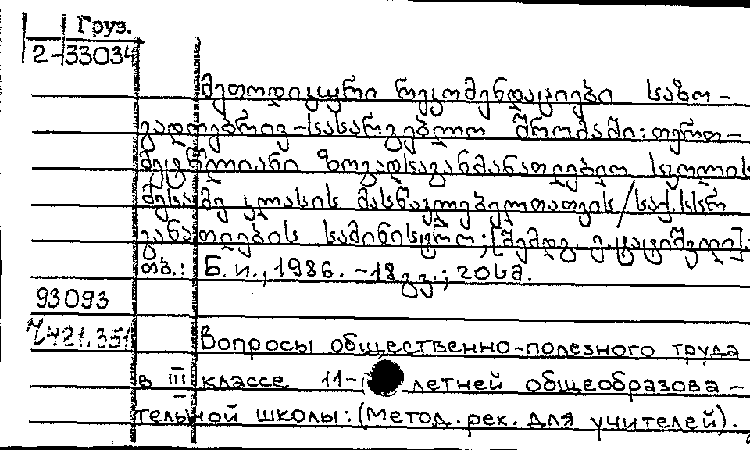 Груз.
2-33034
მეთოდიკური რეკომენდაციები საზო-
გადოებრივ-სასარგებლო შრომაში: თერთ-
მეტწლიანი ზოგადსაგანმანათლებლო სკოლის
მესამე კლასის მასწავლებელთათვის/საქ. სსრ
განათლების სამინისტრო; [შემდგ.
თბ.: Б. и., 1986. -18გვ.; 20სმ.
93093
421.351
Вопросы общественно-полезного труда
в III классе 11- летней общеобразова-
тельной школы: (Метод. рек. для учителей).